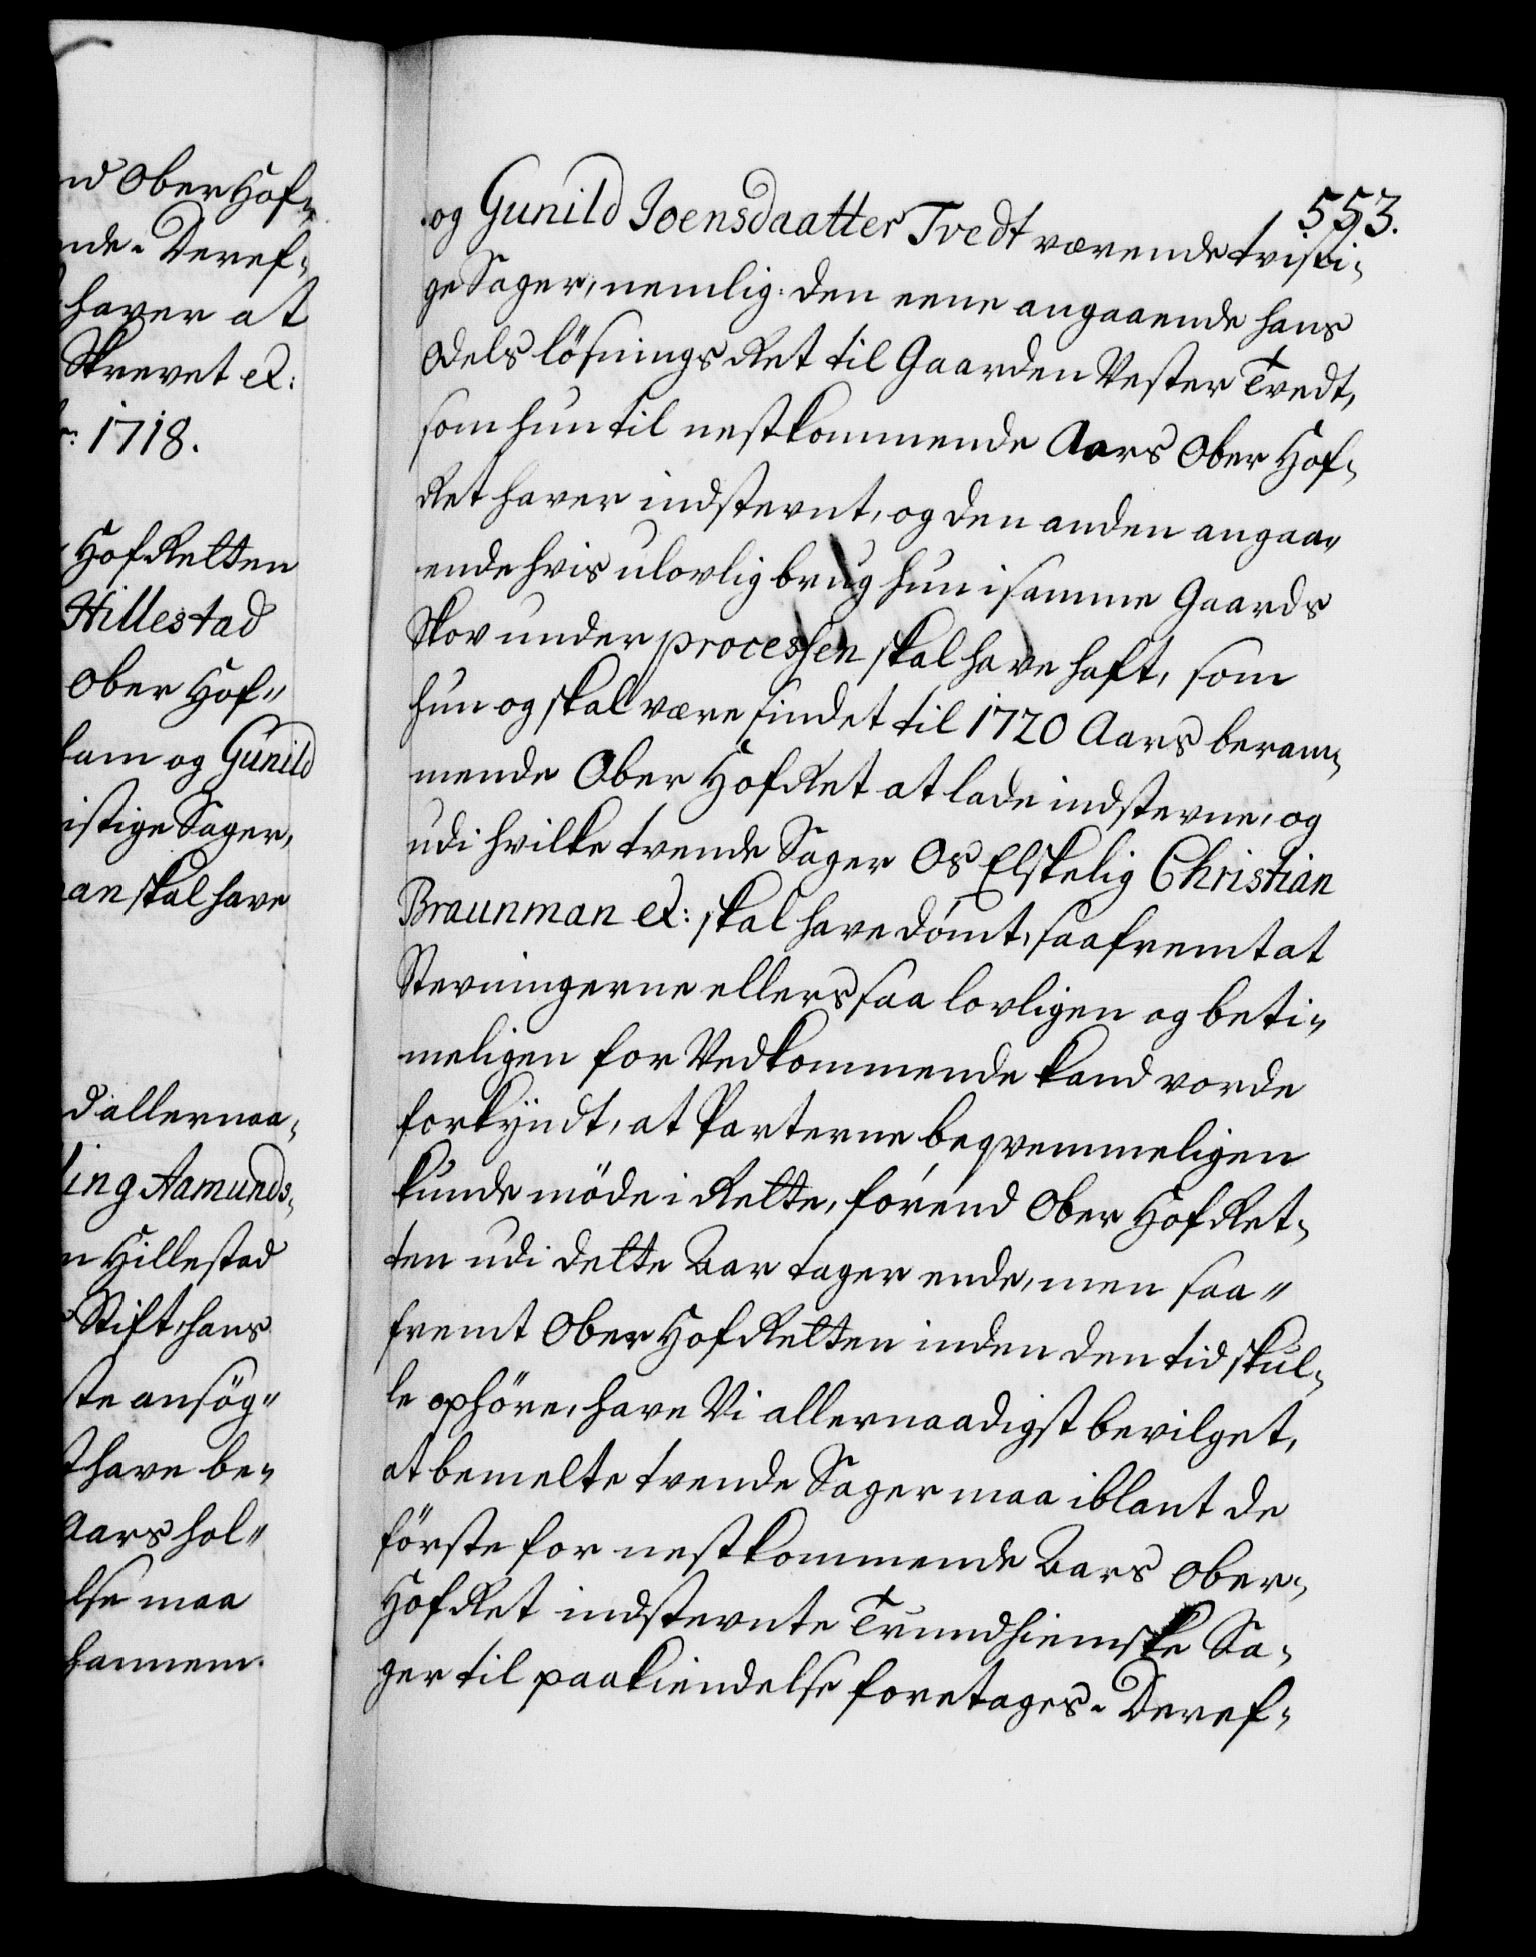 nd Ober Hof-
nde. Deref-
haver at
Skrevet etc:
r: 1718.
Hof Retten
Hillestad
Ober Hof-
ham og Gunild
istige Sager,
an skal have
d allernaa-
ling Aamunds-
n Hillestad
Stift, hans
ste ansøg-
t have be-
Aars hol-
lse maa
hannem.
553.
og Gunild Joensdaatter Tvedt værende tvisti-
ge Sager, nemlig: den eene angaaende hans
Odels løsnings Ret til Gaarden Vester Tvedt,
som hun til nestkommende Aars Ober Hof-
Ret haver indstevnt, og den anden angaa-
ende hvis ulovlig brug hun i samme Gaards
Skov under processen skal have haft, som
hun og skal være sindet til 1720 Aars beram-
mende Ober Hof Ret at lade indstevne, og
udi hvilke tvende Sager Os Elskelig Christian
Braunman etc: skal have dømt, saafremt at
Stevningerne ellers saa lovligen og beti-
meligen for Vedkommende kand vorde
forkyndt, at Parterne beqvemmeligen
kunde møde i Rette, førend Ober Hof Ret-
ten udi dette Aar tager ende, men saa-
fremt Ober Hof Retten inden den tid skul-
le ophøre, have Vi allernaadigst bevilget,
at bemelte tvende Sager maa iblant de
første for nestkommende Aars Ober-
Hof Ret indstevnte Trundhiemske Sa-
ger til paakiendelse foretages. Deref-